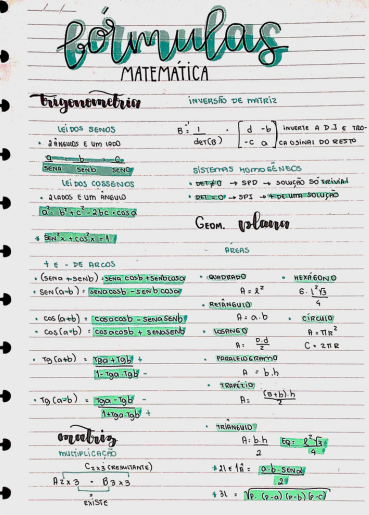 fórmulas
MATEMÁTICA
trigonometria
LEI DOS SENOS
• 2 ÂNGULOS E UM LADO
a = b = c
SENA SENB SENC
LEI DOS COSSENOS
• 2 LADOS E UM ÂNGULO
a² = b² + c² - 2bc · cosa
* SEN²x + cos²x = 1
+ E - DE ARCOS
• (SENa + SENb) = SENa cosb + SENb cosa
• SEN(a-b) = SENa cosb - SENb cosa
• cos(a+b) = cosa cosb - SENa SENb
• cos(a-b) = cosa cosb + SENa SENb
• Tg(a+b) = Tga + Tgb +
1 - Tga · Tgb -
• Tg(a-b) = Tga - Tgb -
1 + Tga · Tgb +
matriz
MULTIPLICAÇÃO
C2x3 (RESULTANTE)
A2x3 · B3x3
EXISTE
INVERSÃO DE MATRIZ
B = 1 · [d -b] INVERTE A D.J E TRO-
det(B) [-c a] CA OSINAL DO RESTO
SISTEMAS HOMOGÊNEOS
• DET ≠ 0 → SPD → SOLUÇÃO SÓ TRIVIAL
• DET = 0 → SPI → + DE UMA SOLUÇÃO
GEOM. plana
- ÁREAS
• QUADRADO
A = l²
• RETÂNGULO
A = a.b
• LOSANGO
A: D.d
2
• HEXÁGONO
6. l²√3
4
• CÍRCULO
A = πR²
C = 2πR
• PARALELOGRAMO
A = b.h
• TRAPÉZIO
A = (B+b).h
2
• TRIÂNGULO
A: b.h EQ: l²√3
2 4
* 2l e 1Â = a·b·SENα
2
* 3L = √p·(p-a)(p-b)(p-c)